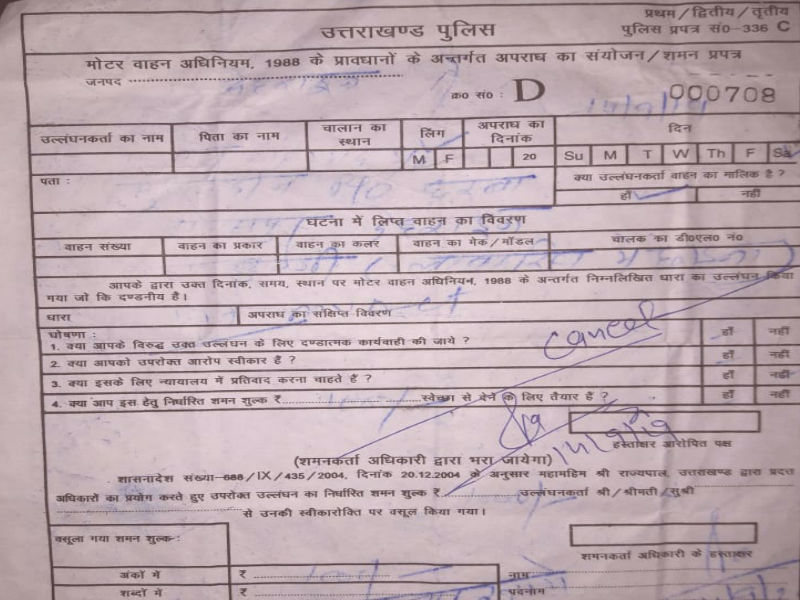 प्रथम/द्वितीय/तृतीय
उत्तराखण्ड पुलिस
पुलिस प्रपत्र सं0-336 C
मोटर वाहन अधिनियम, 1988 के प्रावधानों के अन्तर्गत अपराध का संयोजन/शमन प्रपत्र
जनपद
क्र0 सं0 : D 000708
उल्लंघनकर्ता का नाम पिता का नाम चालान का स्थान लिंग अपराध का दिनांक दिन
M F 20 Su M T W Th F Sa
पता : क्या उल्लंघनकर्ता वाहन का मालिक है ?
हाँ नहीं
घटना में लिप्त वाहन का विवरण
वाहन संख्या वाहन का प्रकार वाहन का कलर वाहन का मेक/मॉडल चालक का डी0एल0 नं0
आपके द्वारा उक्त दिनांक, समय, स्थान पर मोटर वाहन अधिनियन, 1988 के अन्तर्गत निम्नलिखित धारा का उल्लंघन किया
गया जो कि दण्डनीय है।
धारा अपराध का संक्षिप्त विवरण
घोषणा :
1. क्या आपके विरुद्ध उक्त उल्लंघन के लिए दण्डात्मक कार्यवाही की जाये ? हाँ नहीं
Cancel
2. क्या आपको उपरोक्त आरोप स्वीकार हैं ? हाँ नहीं
3. क्या इसके लिए न्यायालय में प्रतिवाद करना चाहते हैं ? हाँ नहीं
4. क्या आप इस हेतु निर्धारित शमन शुल्क ₹ स्वेच्छा से देने के लिए तैयार हैं ? हाँ नहीं
हस्ताक्षर आरोपित पक्ष
(शमनकर्ता अधिकारी द्वारा भरा जायेगा)
शासनादेश संख्या-688/IX/435/2004, दिनांक 20.12.2004 के अनुसार महामहिम श्री राज्यपाल, उत्तराखण्ड द्वारा प्रदत्त
अधिकारों का प्रयोग करते हुए उपरोक्त उल्लंघन का निर्धारित शमन शुल्क ₹ उल्लंघनकर्ता श्री/श्रीमती/सुश्री
से उनकी स्वीकारोक्ति पर वसूल किया गया।
वसूला गया शमन शुल्क :
शमनकर्ता अधिकारी के हस्ताक्षर
अंकों में ₹ नाम
शब्दों में ₹ पदनाम